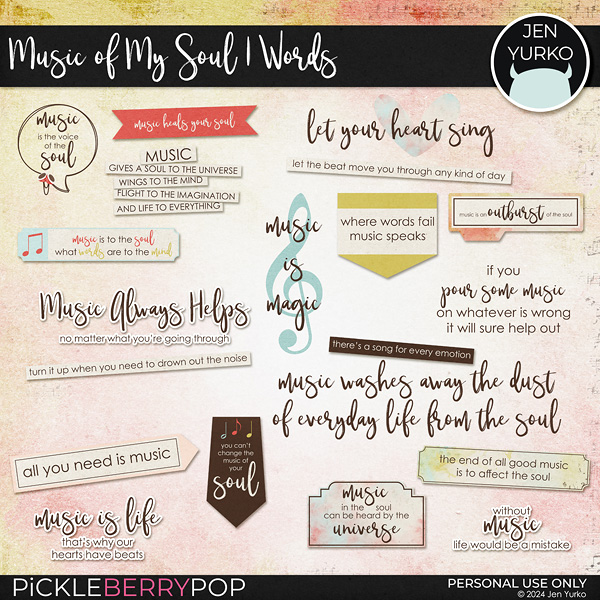 Music of My Soul | Words
JEN
YURKO
music
is the voice
of the
soul
music heals your soul
let your heart sing
let the beat move you through any kind of day
MUSIC
GIVES A SOUL TO THE UNIVERSE
WINGS TO THE MIND
FLIGHT TO THE IMAGINATION
AND LIFE TO EVERYTHING
music
is
magic
where words fail
music speaks
music is an outburst of the soul
music is to the soul
what words are to the mind
if you
pour some music
on whatever is wrong
it will sure help out
Music Always Helps
no matter what you're going through
there's a song for every emotion
turn it up when you need to drown out the noise
music washes away the dust
of everyday life from the soul
all you need is music
you can't
change the
music of
your
soul
the end of all good music
is to affect the soul
music is life
that's why our
hearts have beats
music
in the soul
can be heard by the
universe
without
music
life would be a mistake
PiCKLEBERRYPOP
PERSONAL USE ONLY
©2024 Jen Yurko